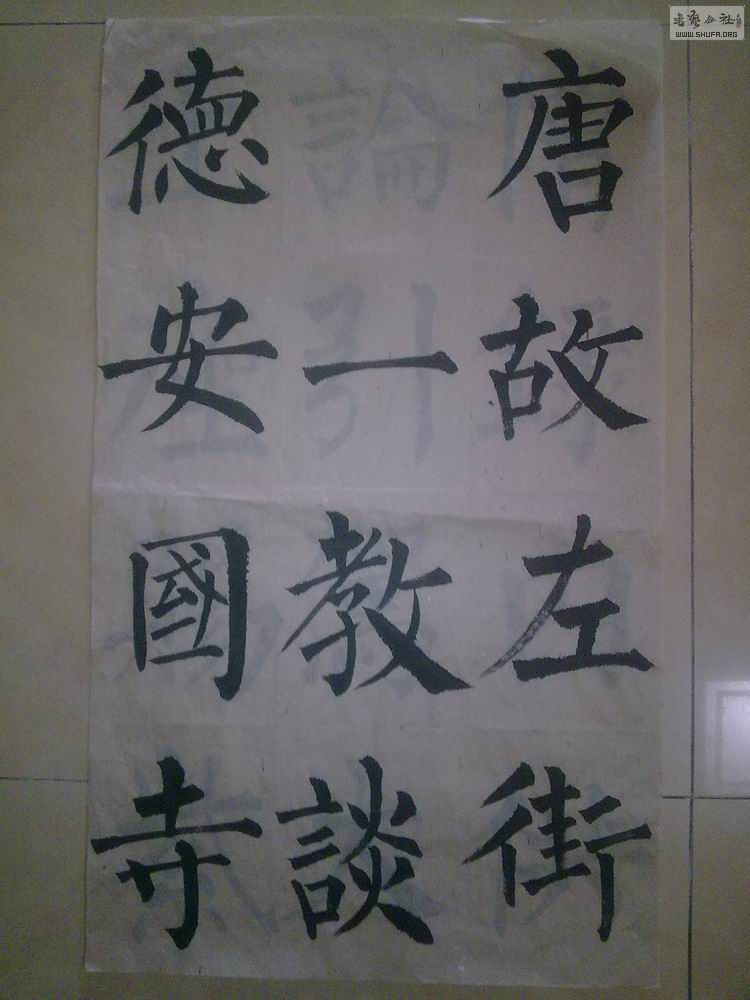 唐故左街
一教談
德安國寺
書藝公社
WWW.SHUFA.ORG